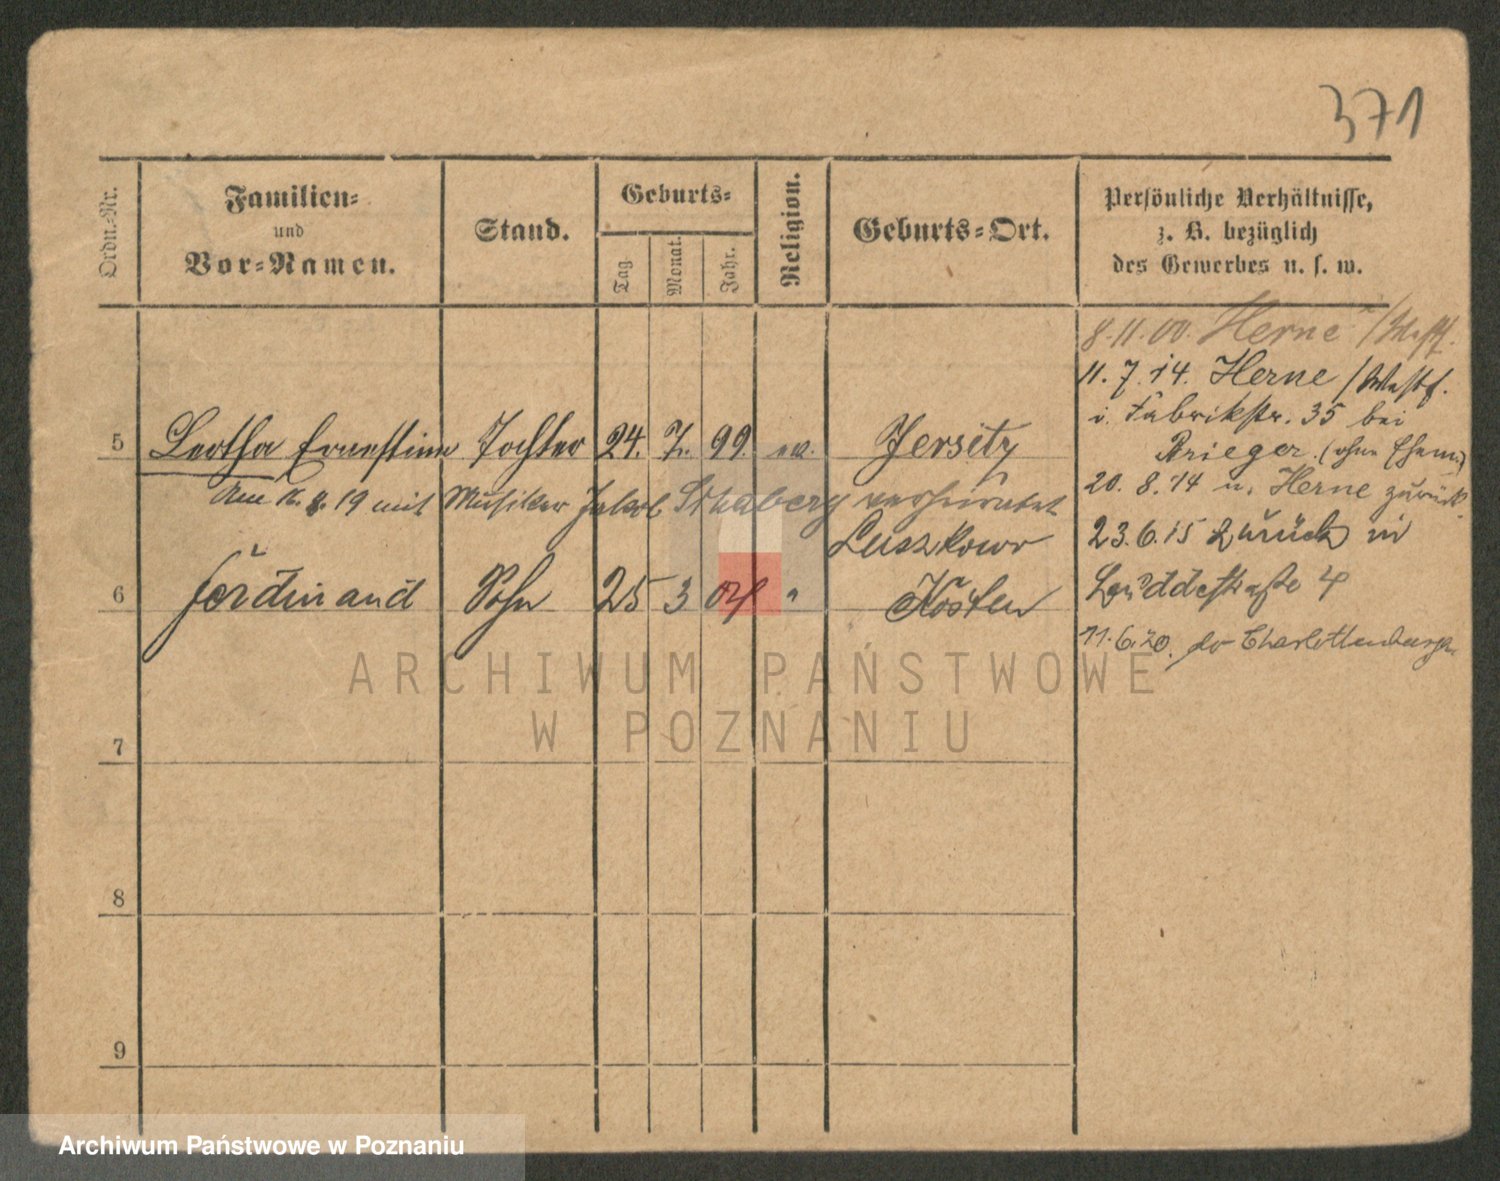 371
Ordn.-Nr.
Familien-
und
Vor-Namen.
Stand.
Geburts-
Tag
Monat.
Jahr.
Religion.
Geburts-Ort.
Persönliche Verhältnisse,
z. B. bezüglich
des Gewerbes u. s. w.
8.11.00. Herne /Westf.
11.7.14. Herne /Westf.
i. Fabrikstr. 35 bei
Brieger. (ohne Ehem.)
5 Bertha Ernestine Tochter 24. 7. 99. ev. Jersitz
20.8.14 v. Herne zurück.
Am 16.8.19 mit Musiker Jakob verheiratet
23.6.15 zurück in
Luszkowo
6 Ferdinand Sohn 25 3 04 " Kosten
4
11.6.20. Charlottenburg.
ARCHIWUM PAŃSTWOWE
W POZNANIU
7
8
9
Archiwum Państwowe w Poznaniu